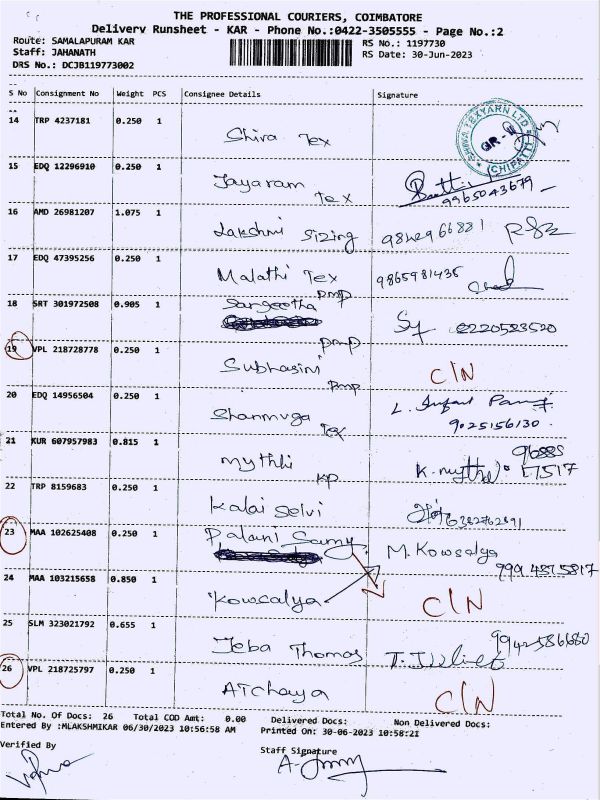 THE PROFESSIONAL COURIERS, COIMBATORE
Delivery Runsheet - KAR - Phone No.:0422-3505555 - Page No.:2
Route: SAMALAPURAM KAR
RS No.: 1197730
Staff: JAHANATH
RS Date: 30-Jun-2023
DRS No.: DCJB119773002
S No Consignment No Weight PCS Consignee Details Signature
14 TRP 4237181 0.250 1 Shiva Tex
SHIVA TEXYARN LTD
(CHIPATTI)
15 EDQ 12296910 0.250 1 Jayaram Tex
9965043679
16 AMD 26981207 1.075 1 Lakshmi Sizing 9842966881
17 EDQ 47395256 0.250 1 Malathi Tex 9865981435
pmp
18 SRT 301972508 0.905 1 Sangeetha
2220523520
pmp
19 VPL 218728778 0.250 1 Subhasini C/N
pmp
20 EDQ 14956504 0.250 1 Shanmuga Tex
9025156130
21 KUR 607957983 0.815 1 mythli K. mythl 96885 17517
KP
22 TRP 8159683 0.250 1 Kalai Selvi
23 MAA 102625408 0.250 1 Palani Samy M. Kowsalya
24 MAA 103215658 0.850 1 Kowsalya C/N
25 SLM 323021792 0.655 1 Jeba Thomas 9942586680
26 VPL 218725797 0.250 1 ATchaya C/N
Total No. Of Docs: 26 Total COD Amt: 0.00 Delivered Docs: Non Delivered Docs:
Entered By :MLAKSHMIKAR 06/30/2023 10:56:58 AM Printed On: 30-06-2023 10:58:2I
Verified By
Staff Signature